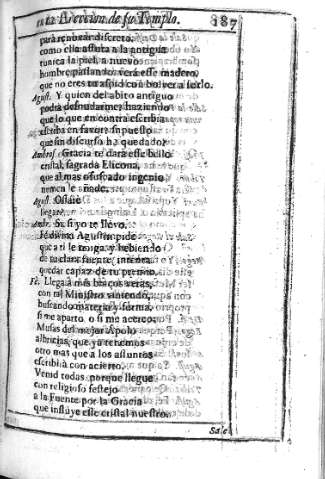 en la Ereccion de su Templo. 887
para renovar discreto,
como ella assuta a la antigua
tunica la piel, a nuevo
hombre passando, verá esse madero,
que no eres tu aspid con bolver a serlo.
Agust. Y quien del abito antiguo
podrá desnudarme, haziendo
que lo que en contra escrbia
escriba en favor
que sin discurso ha quedado?
Ambros. Gracia te dará esse bello
cristal, sagrada Elicona,
que al mas ofuscado ingenio
numen le añade.
Agust. Osaré
llegar?
Ambr. Si, si yo te llevo.
Agustin pide
que a ti le traiga, y bebiendo
de tu clara fuente, intenta
quedar capaz de tu premio.
Fè. Llega à mis braços veràs,
con tal Ministro viniendo,
buscando materia, y forma,
si me aparto, o si me acerco.
Musas del mejor Apolo
albricias, que ya tenemos
otro mas que a los asuntos
escribirà con acierto:
Venid todas, porque llegue
con religioso festejo
a la Fuente por la Gracia
que influye esse cristal nuestro.
Sale